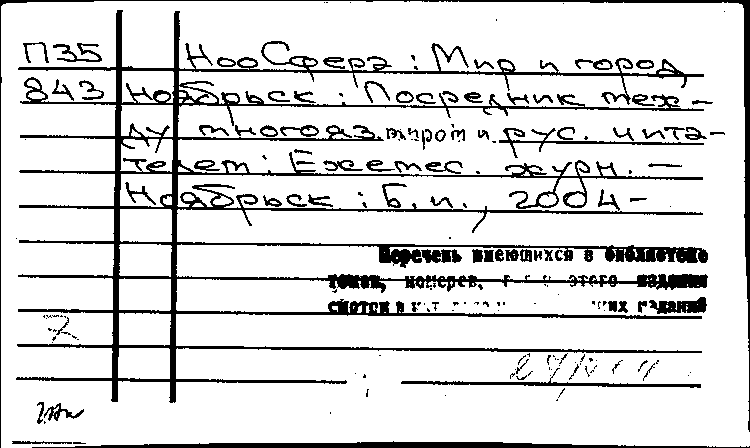 П35 НооСфера : Мир и город
843 Ноябрьск : Посредник меж-
ду многояз. миром и рус. чита-
телем : Ежемес. журн. —
Ноябрьск : Б.и., 2004-
Перечень имеющихся в библиотеке
томов, номеров, этого издания
смотри в
изданий